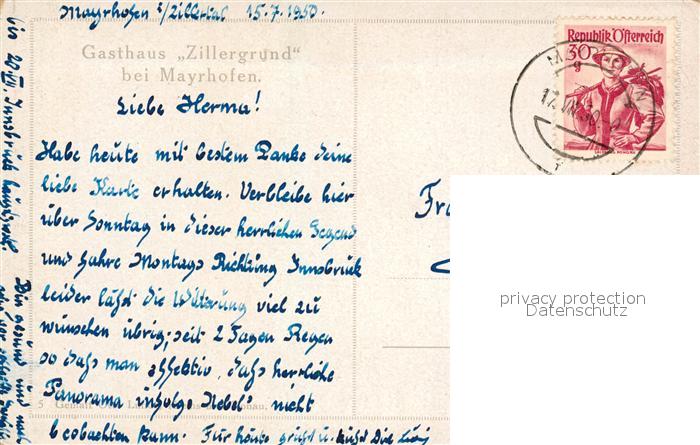 Mayrhofen i/Zillertal 15.7.1950.
Gasthaus „Zillergrund"
bei Mayrhofen.
Liebe Herma!
Habe heute mit bestem Danke deine
liebe Karte erhalten. Verbleibe hier
über Sonntag in dieser herrlichen Gegend
und fahre Montags Richtung Innsbruck
leider läßt die Witterung viel zu
wünschen übrig; seit 2 Tagen Regen
so daß man effektiv, daß herrliche
Panorama infolge Nebel nicht
beobachten kann. Für heute grüßt u. küßt Dich
bis 20.VII. Innsbruck
Bin gesund und
Republik Österreich
30
g
Fr
privacy protection
Datenschutz